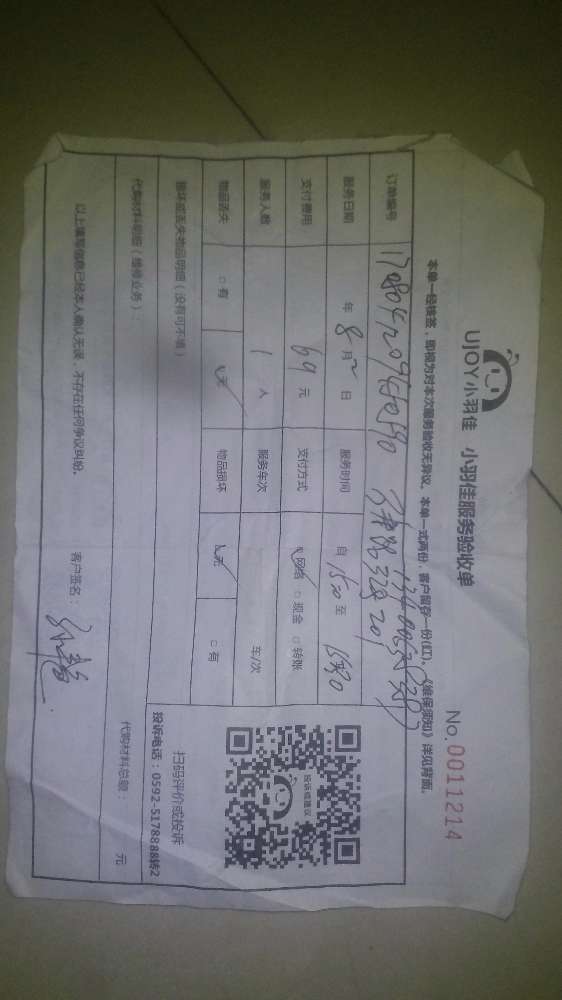 UJOY小羽佳 小羽佳服务验收单
No.0011214
本单一经核签，即视为对本次服务验收无异议。本单一式两份，客户留存一份(红)，《维保须知》详见背面。
订单编号
服务日期 年 8月2日 服务时间 自 15:00 至
支付费用 69 元 支付方式 网络 □ 现金 □ 转账
服务人数 1 人 服务车次 车/次
物品丢失 □ 有 无 物品损坏 无 □ 有
损坏或丢失物品明细（没有可不填）
投诉或建议
扫码评价或投诉
投诉电话：0592-5178888转2
代购材料明细（维修业务）：
代购材料总额： 元
以上填写信息已经本人确认无误，不存在任何争议纠纷。
客户签名：